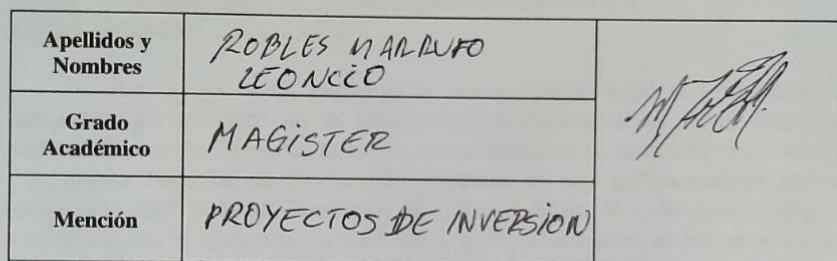 Apellidos y
Nombres
ROBLES MARRUFO
LEONCIO
Grado
Académico
MAGISTER
Mención
PROYECTOS DE INVERSION